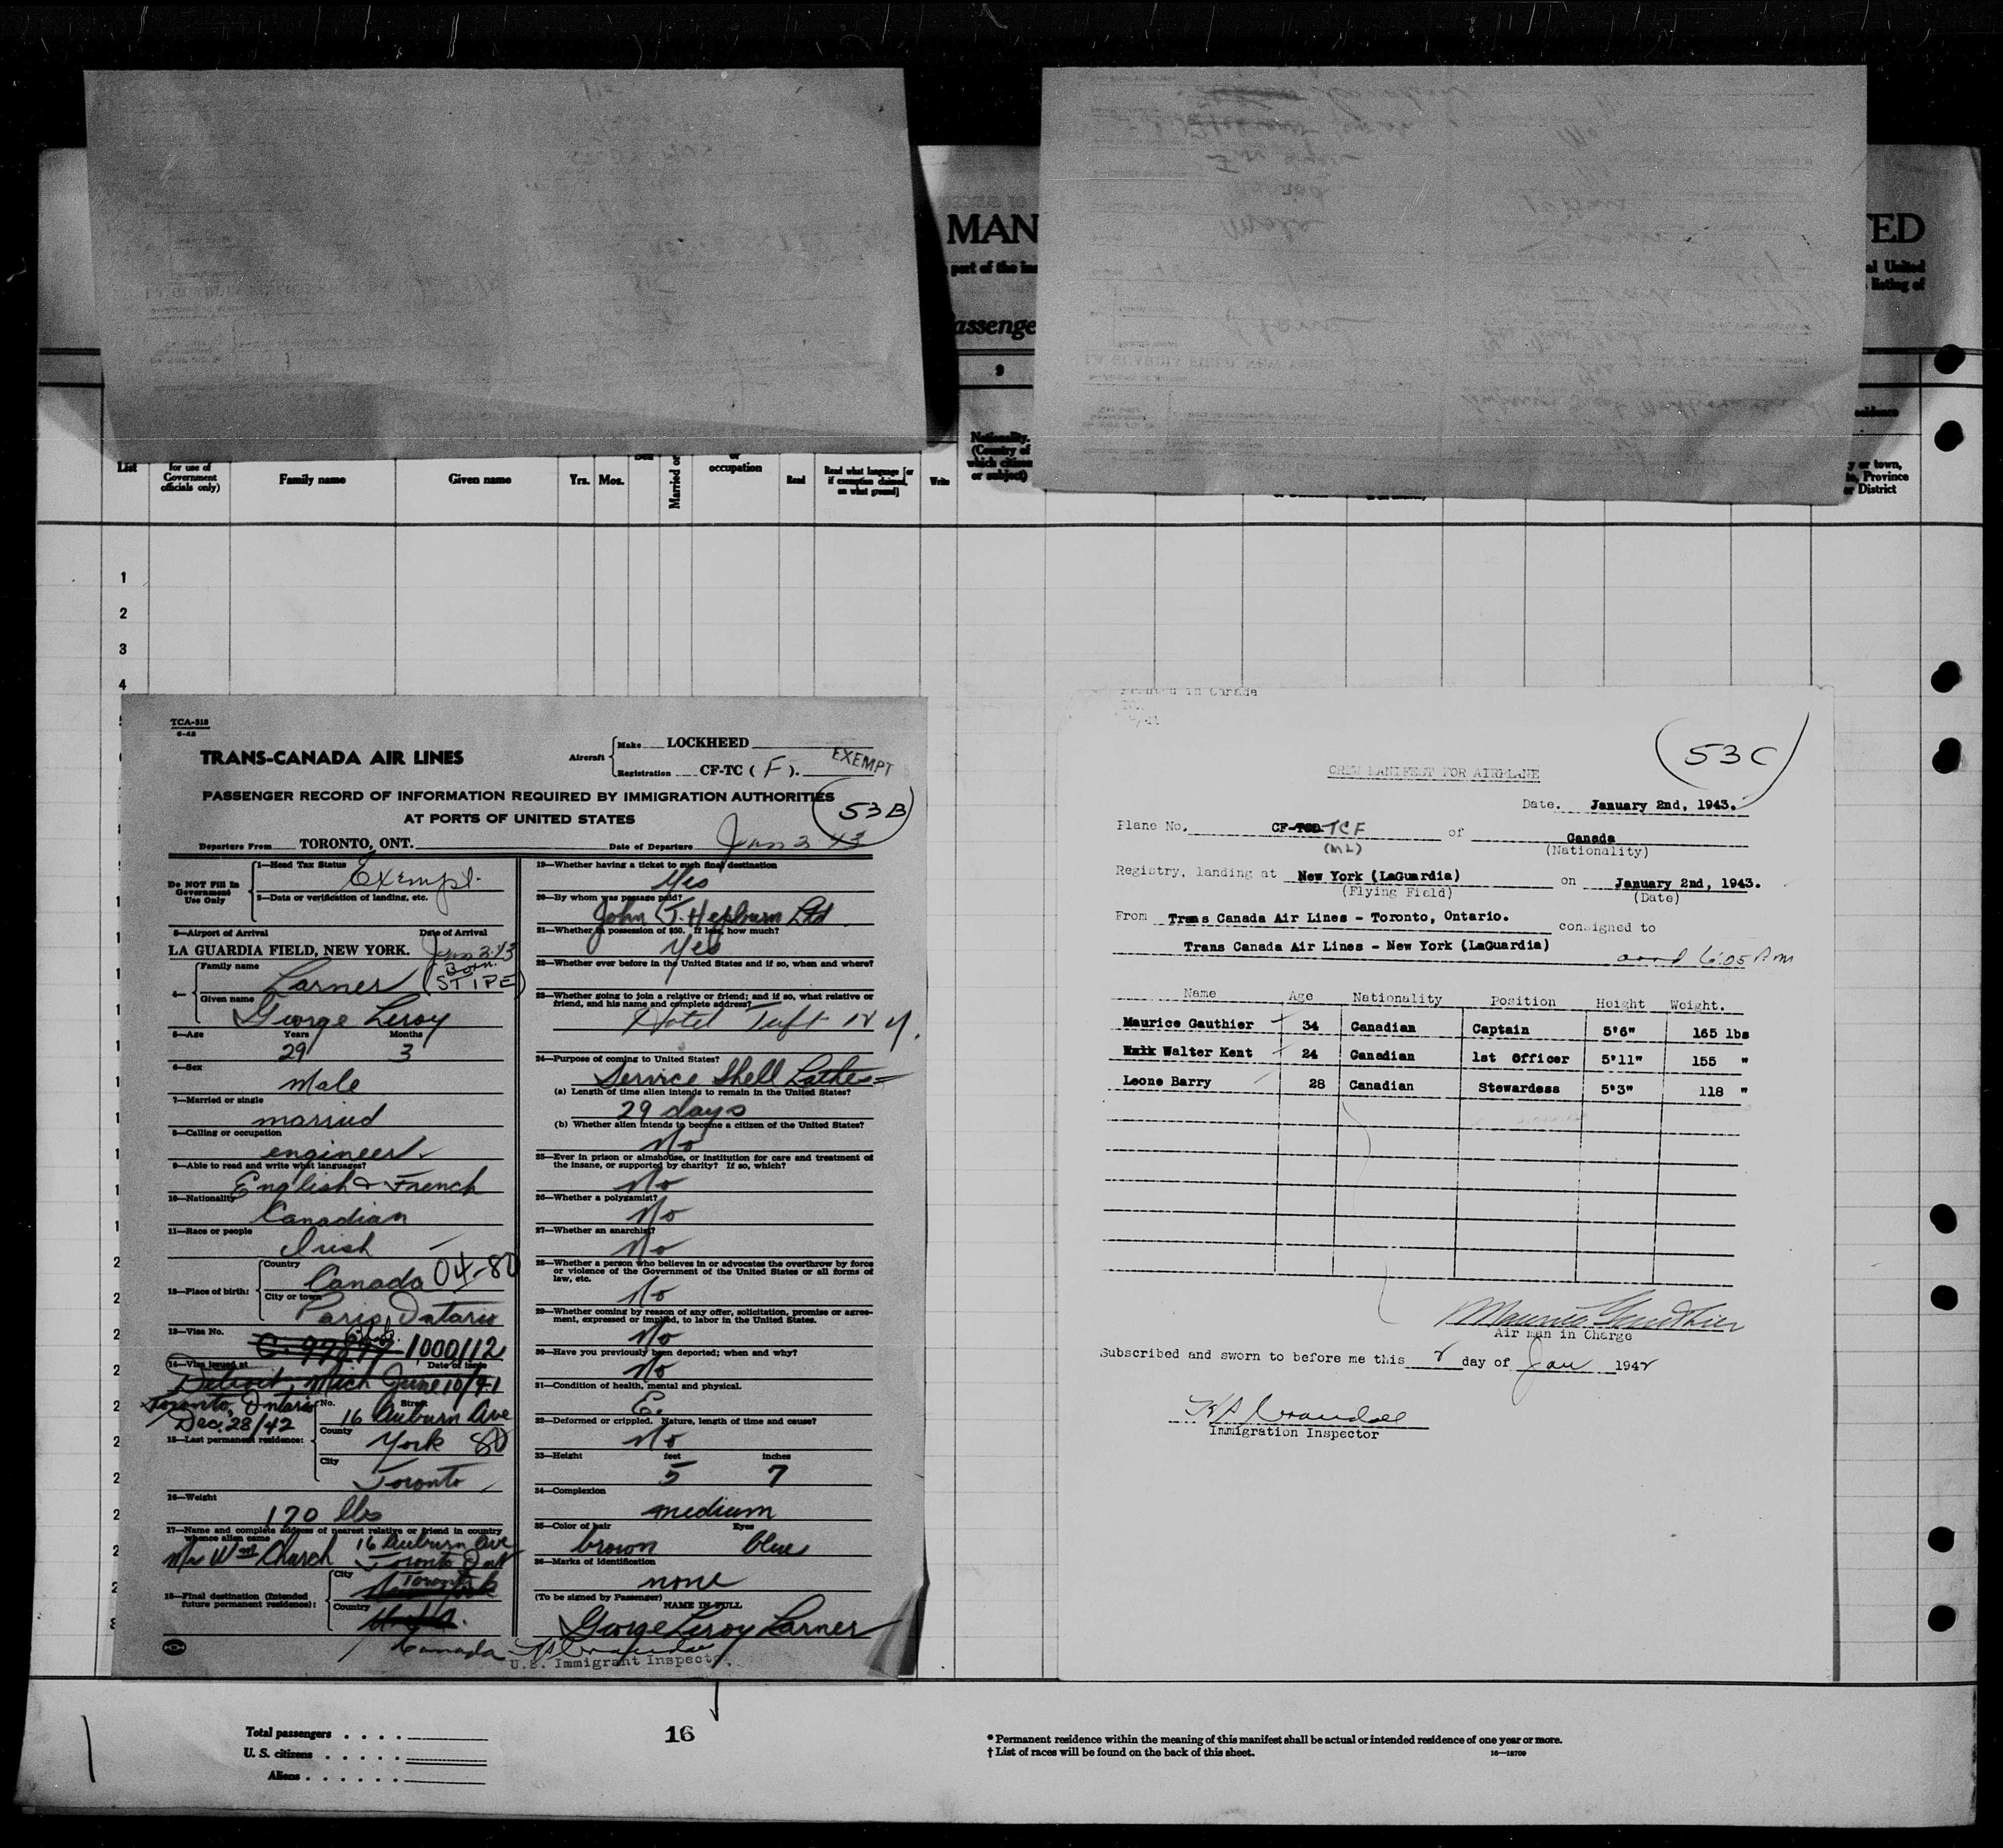 MAN
ED
part of the ins
al United
listing of
assenge
9
Nationality.
(Country of
which citizen
or subject)
List
for use of
Government
officials only)
Family name
Given name
Yrs.
Mos.
Sex
Married or
or
occupation
Read
Read what language [or
if exemption claimed,
on what ground]
Write
y or town,
te, Province
or District
1
2
3
4
TCA-518
6-42
TRANS-CANADA AIR LINES
Aircraft
Make LOCKHEED
Registration CF-TC ( F ).
EXEMPT
PASSENGER RECORD OF INFORMATION REQUIRED BY IMMIGRATION AUTHORITIES
AT PORTS OF UNITED STATES
53B
Departure From TORONTO, ONT.
Date of Departure Jan 2 43
Do NOT Fill In
Government
Use Only
1—Head Tax Status Exempt.
2—Date or verification of landing, etc.
3—Airport of Arrival Date of Arrival
LA GUARDIA FIELD, NEW YORK. Jan 2.43
4— Family name Larner (Born STIPE)
Given name George Leroy
5—Age Years 29 Months 3
6—Sex Male
7—Married or single married
8—Calling or occupation engineer
9—Able to read and write what languages? English & French
10—Nationality Canadian
11—Race or people Irish
12—Place of birth: Country Canada 04-80
City or town Paris Ontario
13—Visa No. C. 99897 1000112
14—Visa issued at Date of issue
Detroit, Mich June 10/41
Toronto, Ontario
Dec. 28/42
15—Last permanent residence: No. Street 16 Auburn Ave
County York 80
City Toronto
16—Weight 170 lbs
17—Name and complete address of nearest relative or friend in country
whence alien came
Mrs Wm Church 16 Auburn Ave
Toronto Ont
18—Final destination (Intended
future permanent residence):
City Toronto
Country
Canada
19—Whether having a ticket to such final destination
Yes
20—By whom was passage paid?
John T. Hepburn Ltd.
21—Whether in possession of $50. If less, how much?
Yes
22—Whether ever before in the United States and if so, when and where?
23—Whether going to join a relative or friend; and if so, what relative or
friend, and his name and complete address?
Hotel Taft N Y.
24—Purpose of coming to United States?
Service Shell Lathes
(a) Length of time alien intends to remain in the United States?
29 days
(b) Whether alien intends to become a citizen of the United States?
No
25—Ever in prison or almshouse, or institution for care and treatment of
the insane, or supported by charity? If so, which?
No
26—Whether a polygamist?
No
27—Whether an anarchist?
No
28—Whether a person who believes in or advocates the overthrow by force
or violence of the Government of the United States or all forms of
law, etc.
No
29—Whether coming by reason of any offer, solicitation, promise or agree-
ment, expressed or implied, to labor in the United States.
No
30—Have you previously been deported; when and why?
No
31—Condition of health, mental and physical.
E.
32—Deformed or crippled. Nature, length of time and cause?
No
33—Height feet 5 inches 7
34—Complexion
medium
35—Color of hair brown Eyes blue
36—Marks of identification
none
(To be signed by Passenger)
NAME IN FULL
George Leroy Larner
U.S. Immigrant Inspector.
Printed in Canada
53C
CREW MANIFEST FOR AIRPLANE
Date. January 2nd, 1943.
Plane No. CF-TCD TCF of Canada
(ML) (Nationality)
Registry, landing at New York (LaGuardia) on January 2nd, 1943.
(Flying Field) (Date)
From Trans Canada Air Lines - Toronto, Ontario. consigned to
Trans Canada Air Lines - New York (LaGuardia) arrd 6:05 P.m
Name Age Nationality Position Height Weight.
Maurice Gauthier 34 Canadian Captain 5'6" 165 lbs
Walter Kent 24 Canadian 1st Officer 5'11" 155 "
Leone Barry 28 Canadian Stewardess 5'3" 118 "
Maurice Gauthier
Air man in Charge
Subscribed and sworn to before me this 2 day of Jan 1942
Immigration Inspector
Total passengers . . . .
U. S. citizens . . . . .
Aliens . . . . . .
16
* Permanent residence within the meaning of this manifest shall be actual or intended residence of one year or more.
† List of races will be found on the back of this sheet.
16—18709